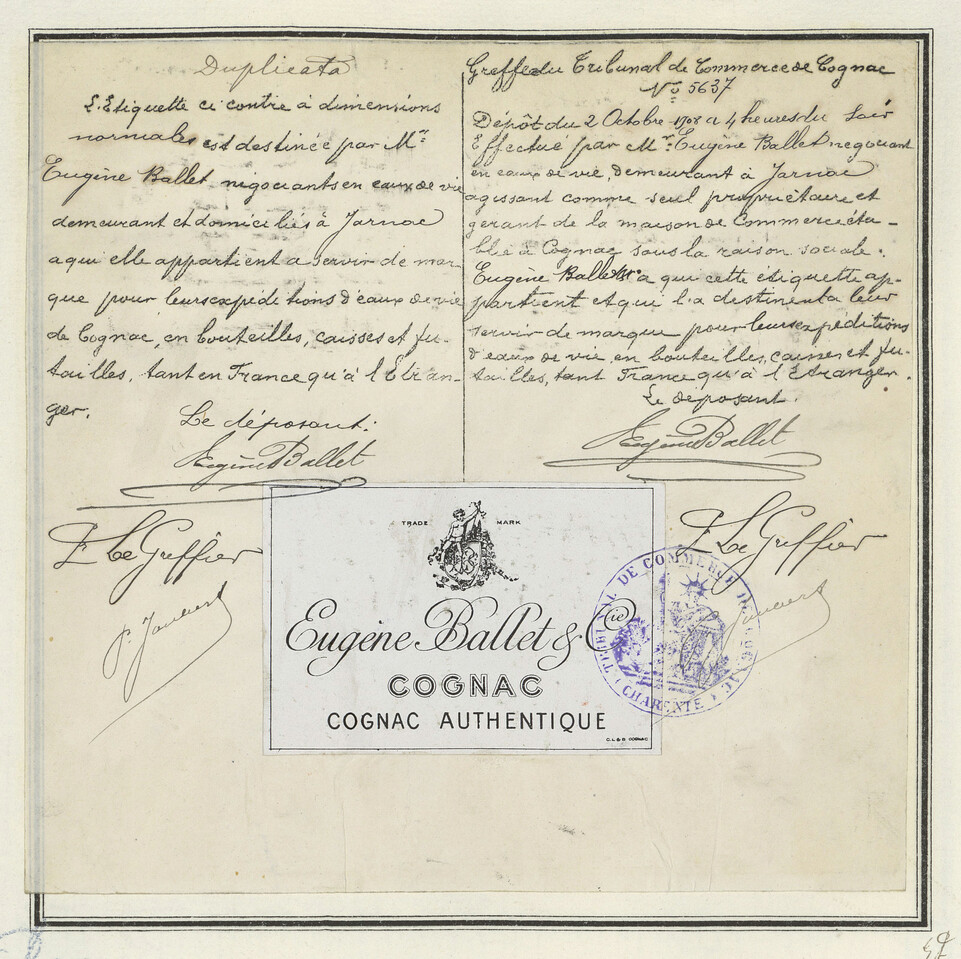 Duplicata
L'Etiquette ci contre à dimensions
normales est destinée par Mr
Eugène Ballet négociants en eaux de vie
demeurant et domiciliés à Jarnac
a qui elle appartient a servir de mar
que pour leurs expéditions d'eaux de vie
de Cognac, en bouteilles, caisses et fu-
tailles, tant en France qu'à l'Etran-
ger.
Le déposant:
Eugène Ballet
Le Greffier
Greffe du Tribunal de Commerce de Cognac
No 5637
Dépôt du 2 Octobre 1908 a 4 heures du Soir
Effectué par Mr Eugène Ballet negociant
en eaux de vie, demeurant à Jarnac
agissant comme seul propriétaire et
gerant de la maison de Commerce éta-
blie à Cognac sous la raison sociale.
Eugène Ballet a qui cette étiquette ap-
partient et qui l'a destinent a leur
servir de marque pour leurs expéditions
d'eaux de vie, en bouteilles, caisses et fu-
tailles, tant France qu'à l'Etranger.
Le déposant.
Eugène Ballet
Le Greffier
TRADE MARK
Eugène Ballet & Cie
COGNAC
COGNAC AUTHENTIQUE
C.L & G COGNAC
TRIBUNAL DE COMMERCE DE COGNAC
CHARENTE